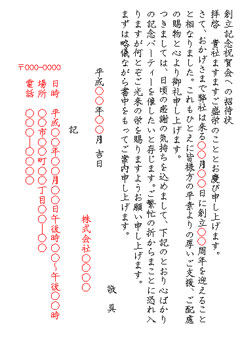 創立記念祝賀会への招待状
拝啓　貴社ますますご盛栄のこととお慶び申し上げます。
さて、おかげさまで弊社は来る○○月○○日に創立○○周年を迎えること
と相なりました。これもひとえに皆様方の平素よりの厚いご支援、ご配慮
の賜物と心より御礼申し上げます。
つきましては、日頃の感謝の気持ちを込めまして、下記のとおり心ばかり
の記念パーティーを催したいと存じます。ご繁忙の折からまことに恐れ入
りますが何とぞご光来の栄を賜りますようお願い申し上げます。
まずは略儀ながら書中をもってご案内申し上げます。
敬　具
平成○○年○○月　吉日
株式会社○○○○
記
日時　平成○○年○○月○○日午後○○時～午後○○時
場所　○○市○○町○○丁目○○―○○
電話　○○○―○○○―○○○○
〒○○○-○○○○